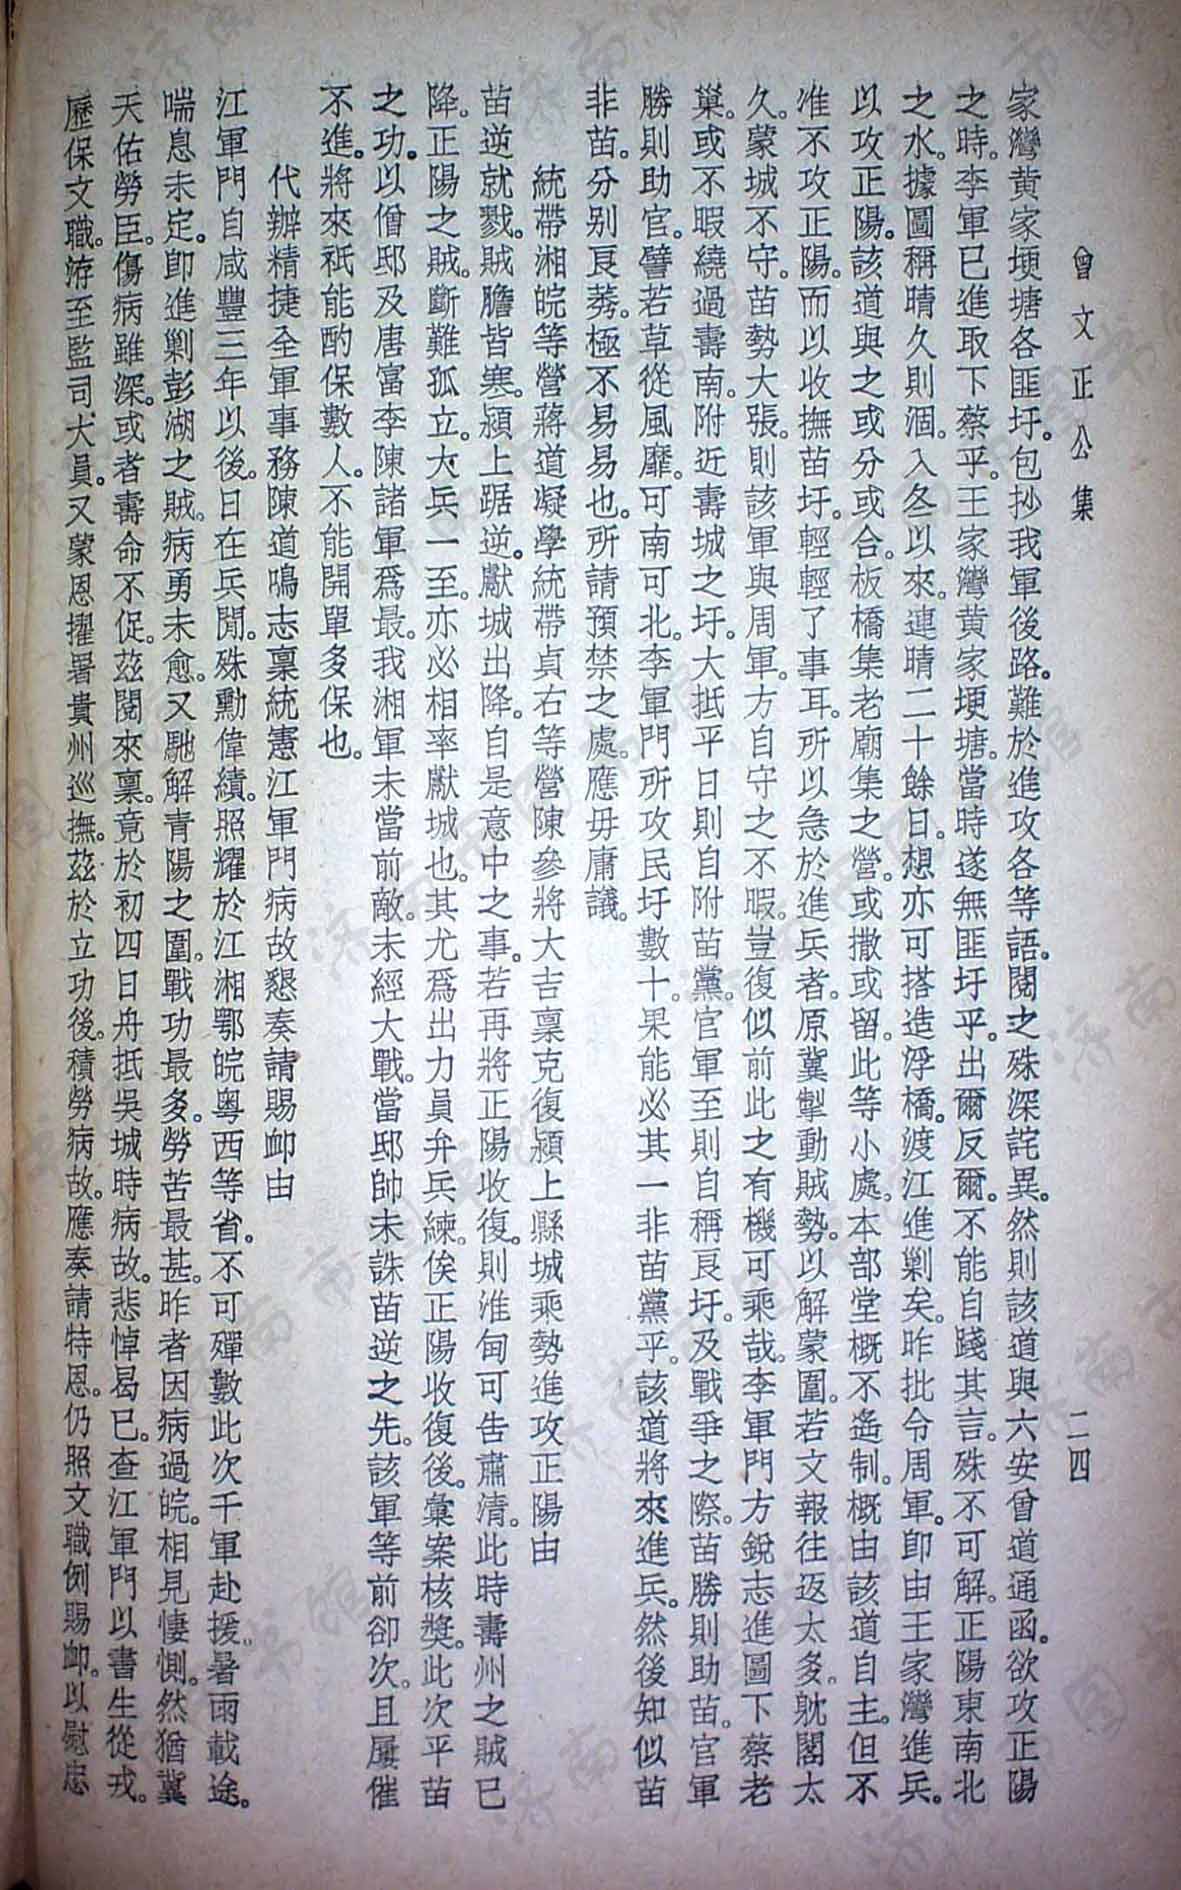 曾文正公集
二四
家灣黃家埂塘各匪圩。包抄我軍後路。難於進攻各等語。閱之殊深詫異。然則該道與六安曾道通函。欲攻正陽
之時。李軍已進取下蔡平。王家灣黃家埂塘。當時遂無匪圩乎。出爾反爾。不能自踐其言。殊不可解。正陽東南北
之水。據圖稱晴久則涸。入冬以來。連晴二十餘日。想亦可搭造浮橋。渡江進剿矣。昨批令周軍。卽由王家灣進兵。
以攻正陽。該道與之或分或合。板橋集老廟集之營。或撒或留。此等小處。本部堂概不遙制。概由該道自主。但不
准不攻正陽。而以收撫苗圩。輕輕了事耳。所以急於進兵者。原冀掣動賊勢。以解蒙圍。若文報往返太多。躭閣太
久。蒙城不守。苗勢大張。則該軍與周軍。方自守之不暇。豈復似前此之有機可乘哉。李軍門方銳志進圖下蔡老
巢。或不暇繞過壽南。附近壽城之圩。大抵平日則自附苗黨。官軍至則自稱良圩。及戰爭之際。苗勝則助苗。官軍
勝則助官。譬若草從風靡。可南可北。李軍門所攻民圩數十。果能必其一非苗黨乎。該道將來進兵。然後知似苗
非苗。分別良莠。極不易易也。所請預禁之處。應毋庸議。
統帶湘皖等營蔣道凝學統帶貞右等營陳參將大吉稟克復潁上縣城乘勢進攻正陽由
苗逆就戮。賊膽皆寒。潁上踞逆。獻城出降。自是意中之事。若再將正陽收復。則淮甸可告肅清。此時壽州之賊已
降。正陽之賊。斷難孤立。大兵一至。亦必相率獻城也。其尤爲出力員弁兵練。俟正陽收復後。彙案核獎。此次平苗
之功。以僧邸及唐富李陳諸軍爲最。我湘軍未當前敵。未經大戰。當邸帥未誅苗逆之先。該軍等前卻次。且屢催
不進。將來祇能酌保數人。不能開單多保也。
代辦精捷全軍事務陳道鳴志稟統憲江軍門病故懇奏請賜卹由
江軍門自咸豐三年以後。日在兵閒。殊勳偉績。照耀於江湘鄂皖粵西等省。不可殫數此次千軍赴援。暑雨載途。
喘息未定。卽進剿彭湖之賊。病勇未愈。又馳解青陽之圍。戰功最多。勞苦最甚。昨者因病過皖。相見悽惻。然猶冀
天佑勞臣。傷病雖深。或者壽命不促。茲閱來稟。竟於初四日舟抵吳城時病故。悲悼曷已。查江軍門以書生從戎。
歷保文職。洊至監司大員。又蒙恩擢署貴州巡撫。茲於立功後。積勞病故。應奏請特恩。仍照文職例賜卹。以慰忠